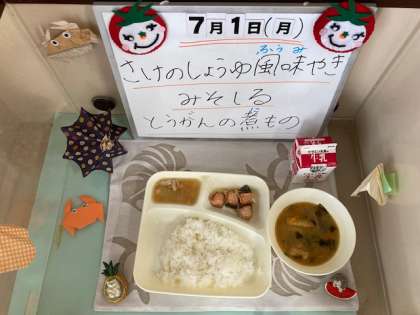 7月1日(月)
ふうみ
さけのしょうゆ風味やき
みそしる
とうがんの煮もの
牛乳